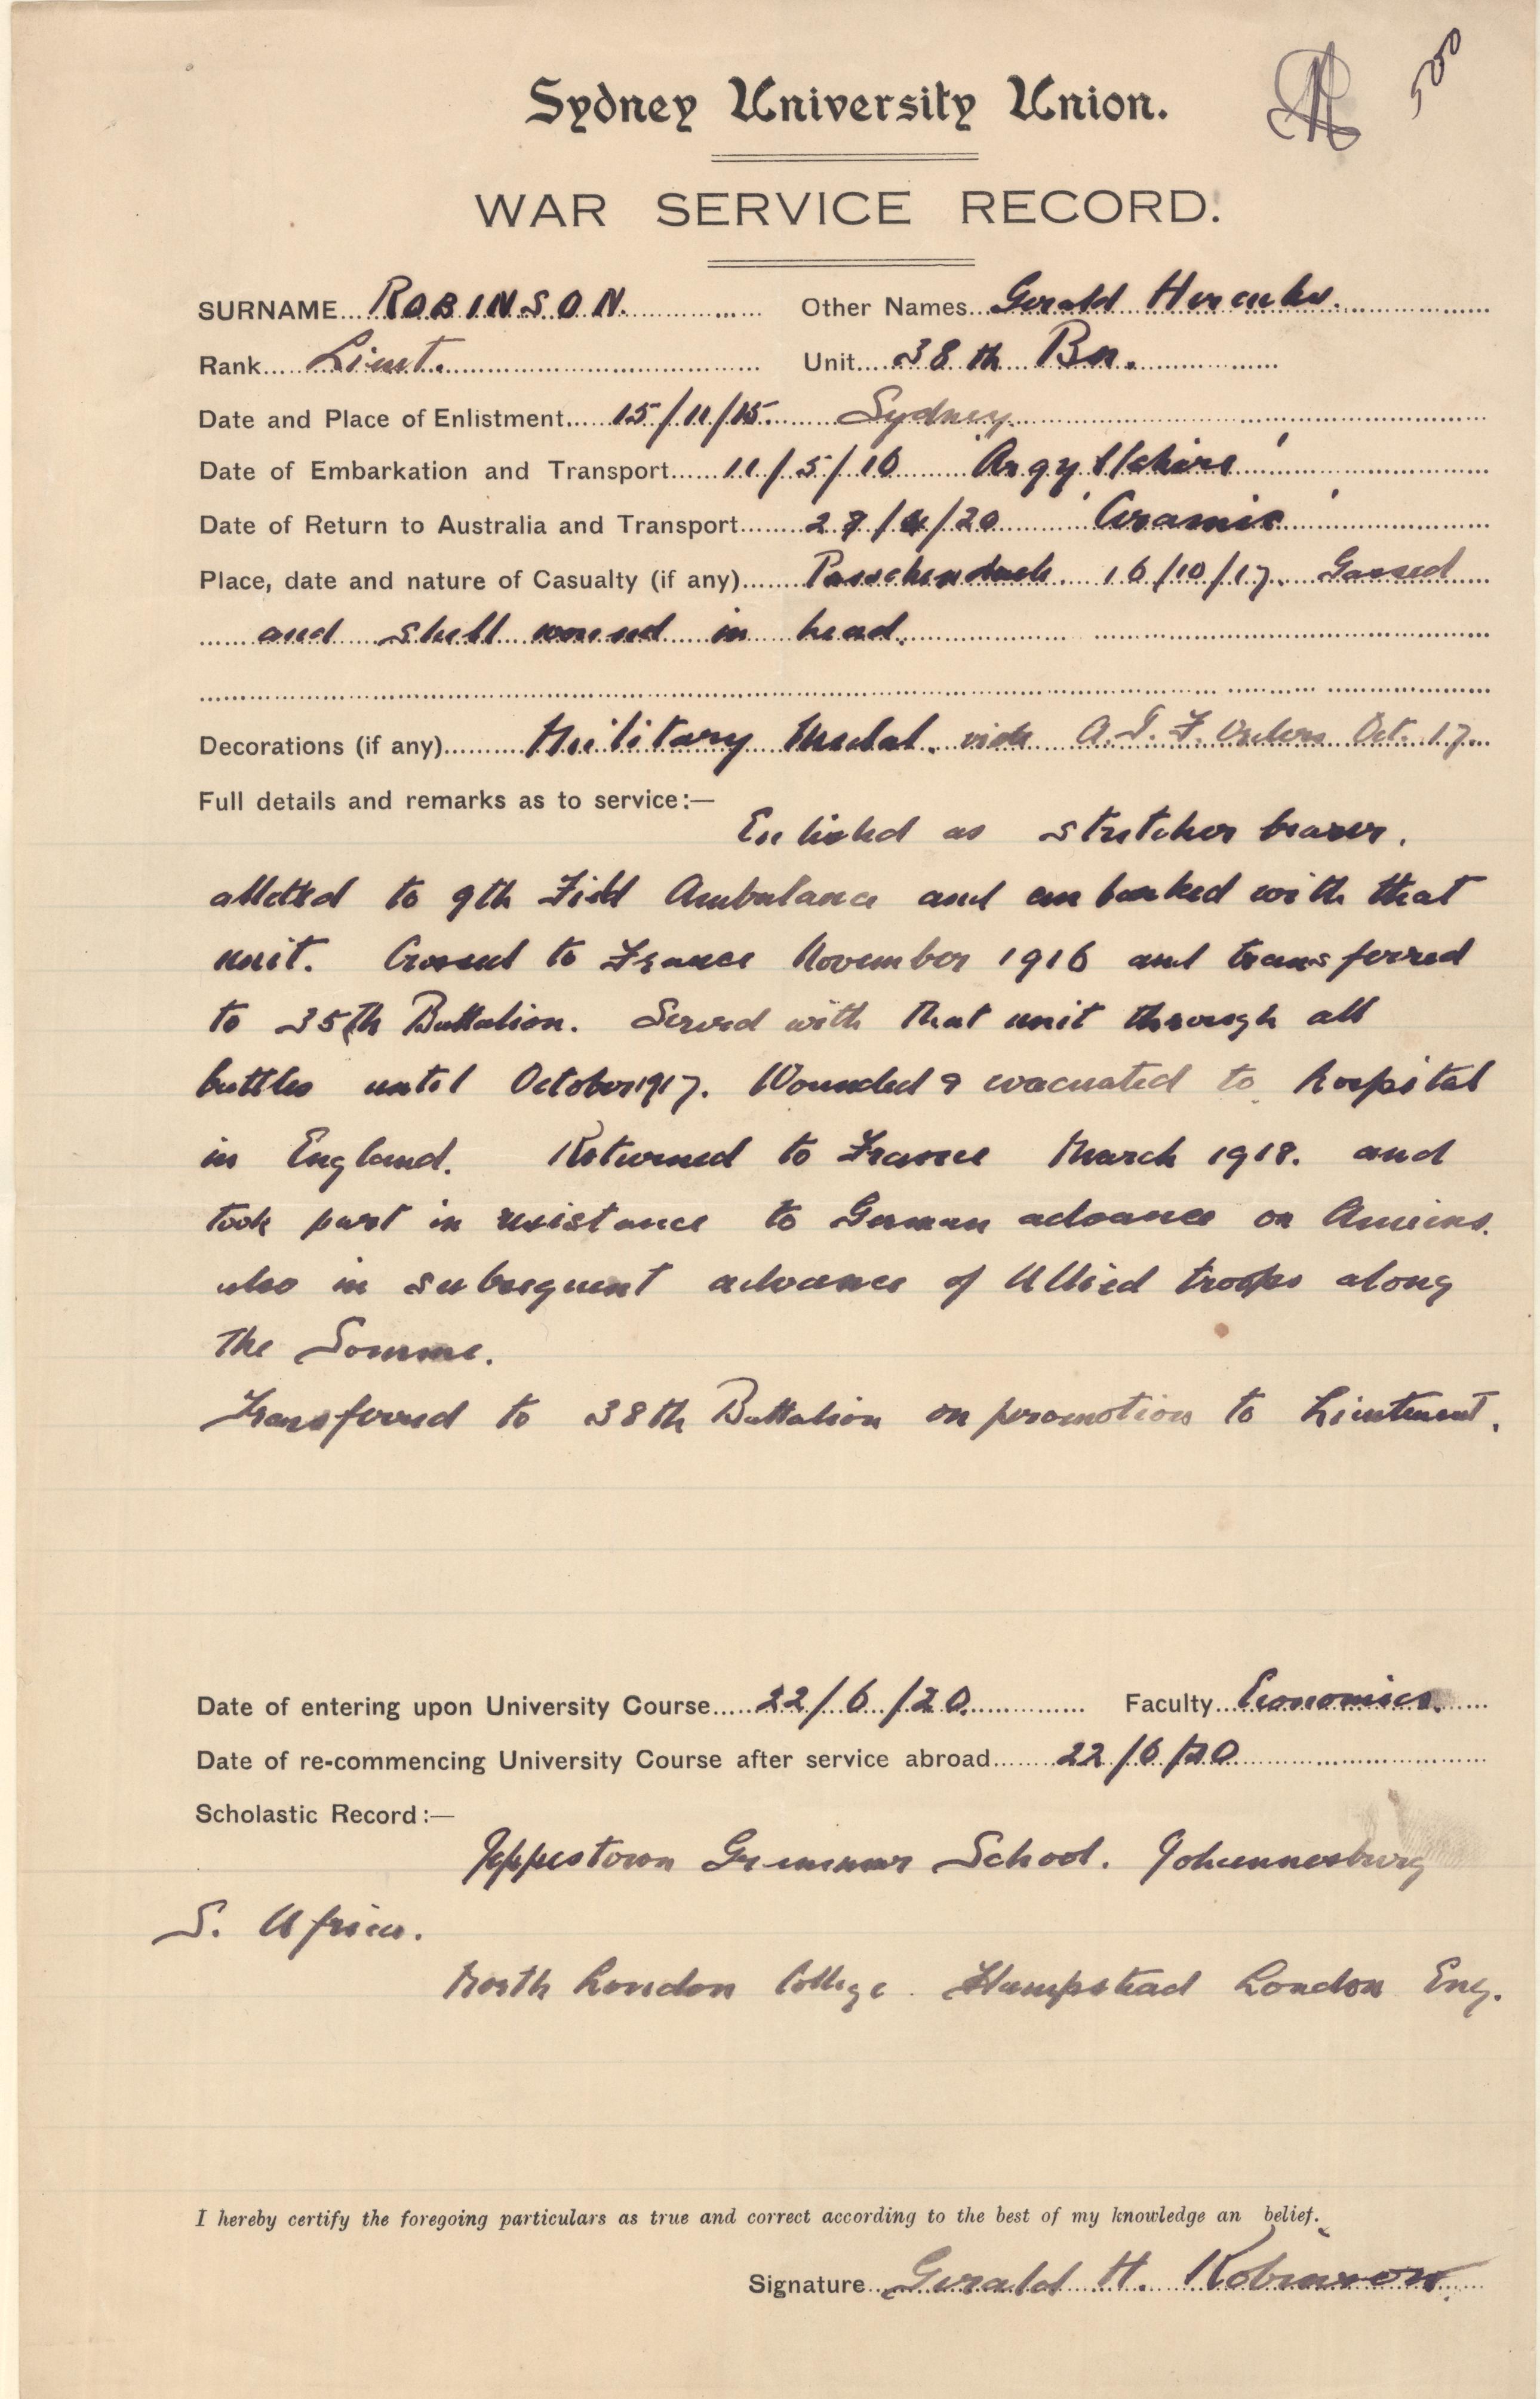 Sydney University Union.
500
WAR SERVICE RECORD.
SURNAME ROBINSON. Other Names Gerald Hercules.
Rank Lieut. Unit 38th Bn.
Date and Place of Enlistment 15/11/15. Sydney.
Date of Embarkation and Transport 11/5/16 'Argyllshire'
Date of Return to Australia and Transport /4/20 'Ceramic'
Place, date and nature of Casualty (if any) Passchendaele 16/10/17. Gassed
and shell wound in head.
Decorations (if any) Military Medal. vide A.I.F. Orders Oct. 17.
Full details and remarks as to service:—
Enlisted as stretcher bearer.
allotted to 9th Field Ambulance and embarked with that
unit. Crossed to France November 1916 and transferred
to 35th Battalion. Served with that unit through all
battles until October 1917. Wounded & evacuated to hospital
in England. Returned to France March 1918. and
took part in resistance to German advance on Amiens.
also in subsequent advance of Allied troops along
the Somme.
Transferred to 38th Battalion on promotion to Lieutenant.
Date of entering upon University Course 22/6/20. Faculty Economics.
Date of re-commencing University Course after service abroad 22/6/20
Scholastic Record:—
Jeppestown Grammar School. Johannesburg
S. Africa.
North London College. Hampstead London Eng.
I hereby certify the foregoing particulars as true and correct according to the best of my knowledge an belief.
Signature Gerald H. Robinson.